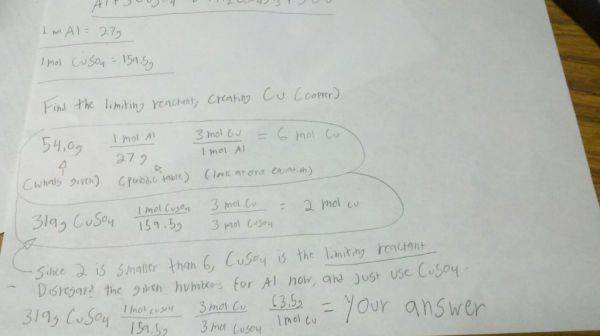 1 mol Al = 27g
1 mol CuSO4 = 159.5g
Find the limiting reactant, creating Cu (copper)
54.0g 1 mol Al / 27g 3 mol Cu / 1 mol Al = 6 mol Cu
(whats given) (periodic table) (look at ore equation)
319g CuSO4 1 mol CuSO4 / 159.5g 3 mol Cu / 3 mol CuSO4 = 2 mol Cu
Since 2 is smaller than 6, CuSO4 is the limiting reactant
- Disregard the given numbers for Al now, and just use CuSO4.
319g CuSO4 1 mol CuSO4 / 159.5g 3 mol Cu / 3 mol CuSO4 63.5g / 1 mol Cu = Your answer